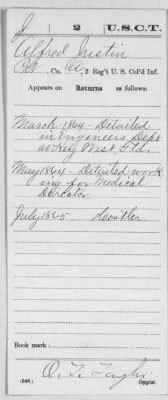 J 2 U.S.C.T.
Alfred Justin
Pvt., Co. A, 2 Reg't U.S. Col'd Inf.
Appears on
Returns as follows:
March 1864 - Detailed
in Engineers Dept
at Key West, Fla.
May 1864 - Detailed work
ing for Medical
Director.
July 1865 - Hostler
Book mark:
O. T. Taylor
(546) Copyist.